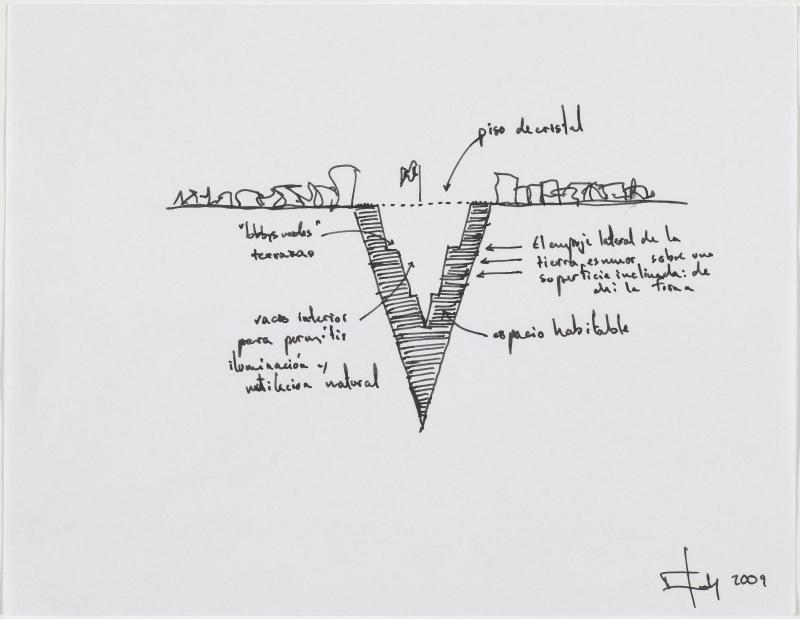 piso de cristal
"lobbys verdes"
terrazas
El empuje lateral de la
tierra es menor, sobre una
superficie inclinada: de
ahi la forma
vacio interior
para permitir
iluminación y
ventilacion natural
espacio habitable
2009